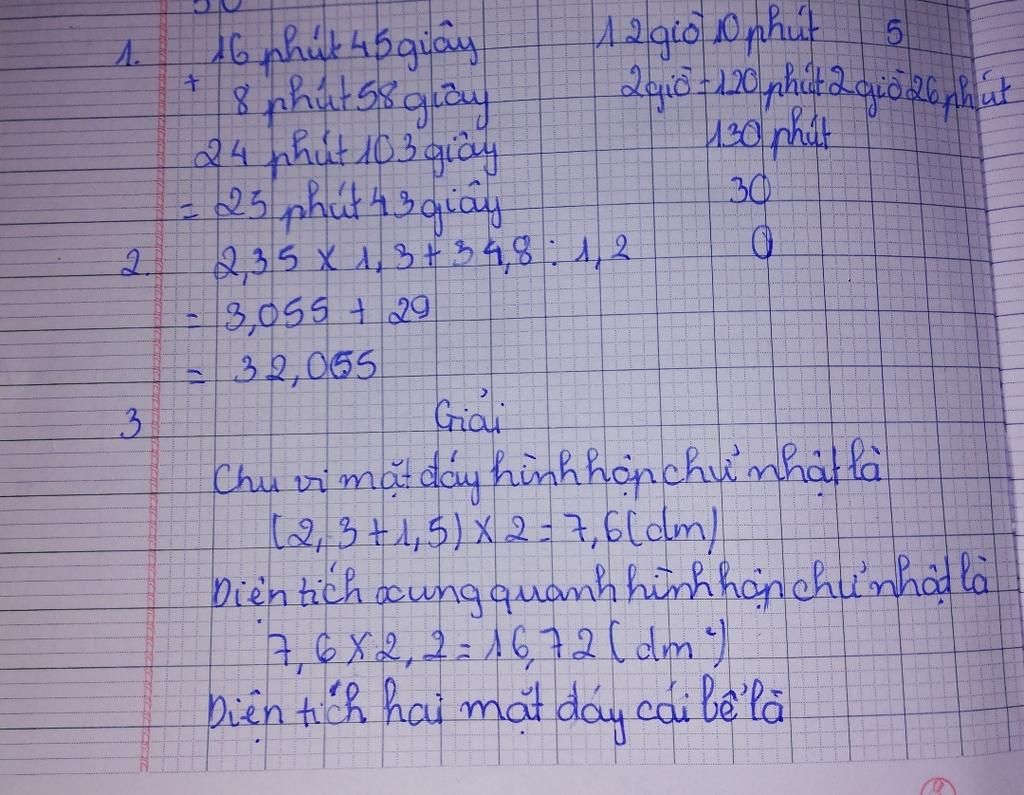 1. 16 phút 45 giây 12 giờ 10 phút 5
+ 8 phút 58 giây 2 giờ = 120 phút 2 giờ 26 phút
24 phút 103 giây 130 phút
= 25 phút 43 giây 30
2. 2,35 x 1,3 + 34,8 : 1,2 0
= 3,055 + 29
= 32,055
3 Giải
Chu vi mặt đáy hình hộp chữ nhật là
(2,3 + 1,5) x 2 = 7,6 (dm)
Diện tích xung quanh hình hộp chữ nhật là
7,6 x 2,2 = 16,72 (dm²)
Diện tích hai mặt đáy cái bể là